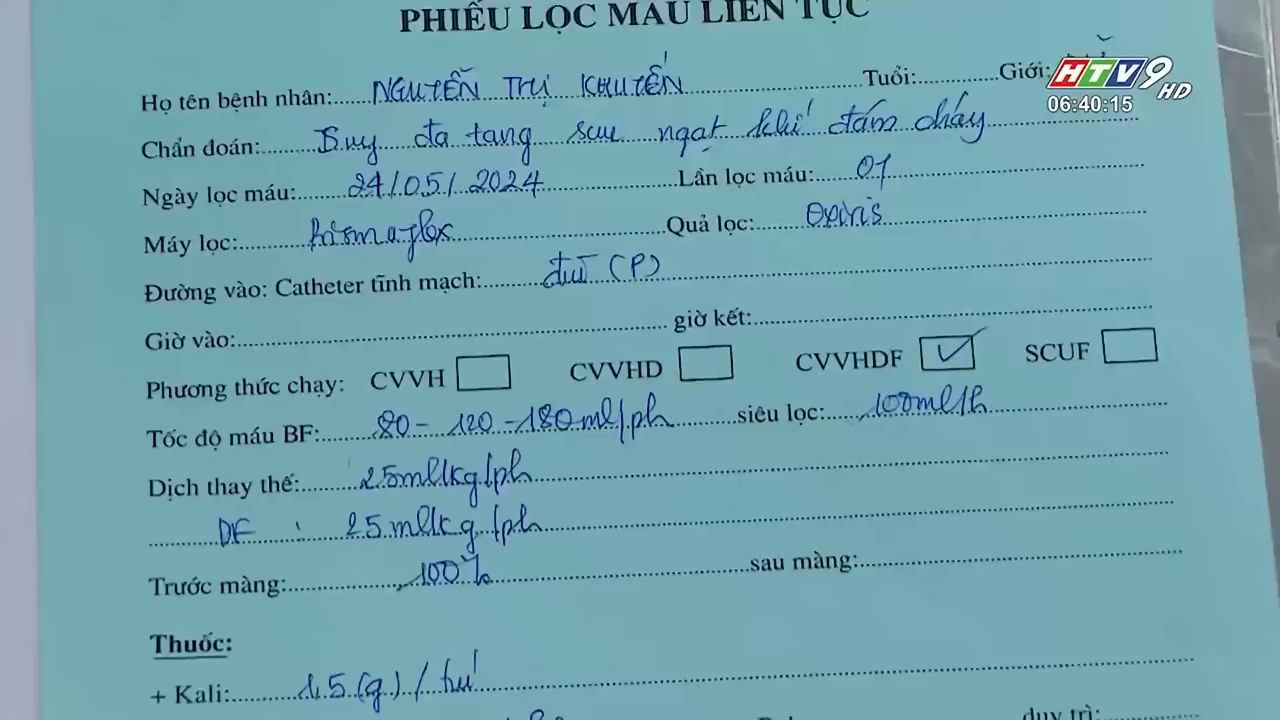 PHIẾU LỌC MÁU LIÊN TỤC
Họ tên bệnh nhân: NGUYỄN THỊ KHUYẾN Tuổi: Giới:
HTV9 HD
06:40:15
Chẩn đoán: Suy đa tạng sau ngạt khí đám cháy
Ngày lọc máu: 24/05/2024 Lần lọc máu: 01
Máy lọc: Prismaflex Quả lọc: Oxiris
Đường vào: Catheter tĩnh mạch: đùi (P)
Giờ vào: giờ kết:
Phương thức chạy: CVVH CVVHD CVVHDF ✓ SCUF
Tốc độ máu BF: 80 - 120 - 180 ml/ph siêu lọc: 100ml/h
Dịch thay thế: 25ml/kg/ph
DF : 25ml/kg/ph
Trước màng: 100% sau màng:
Thuốc:
+ Kali: 1.5 (g) / túi
duy trì: